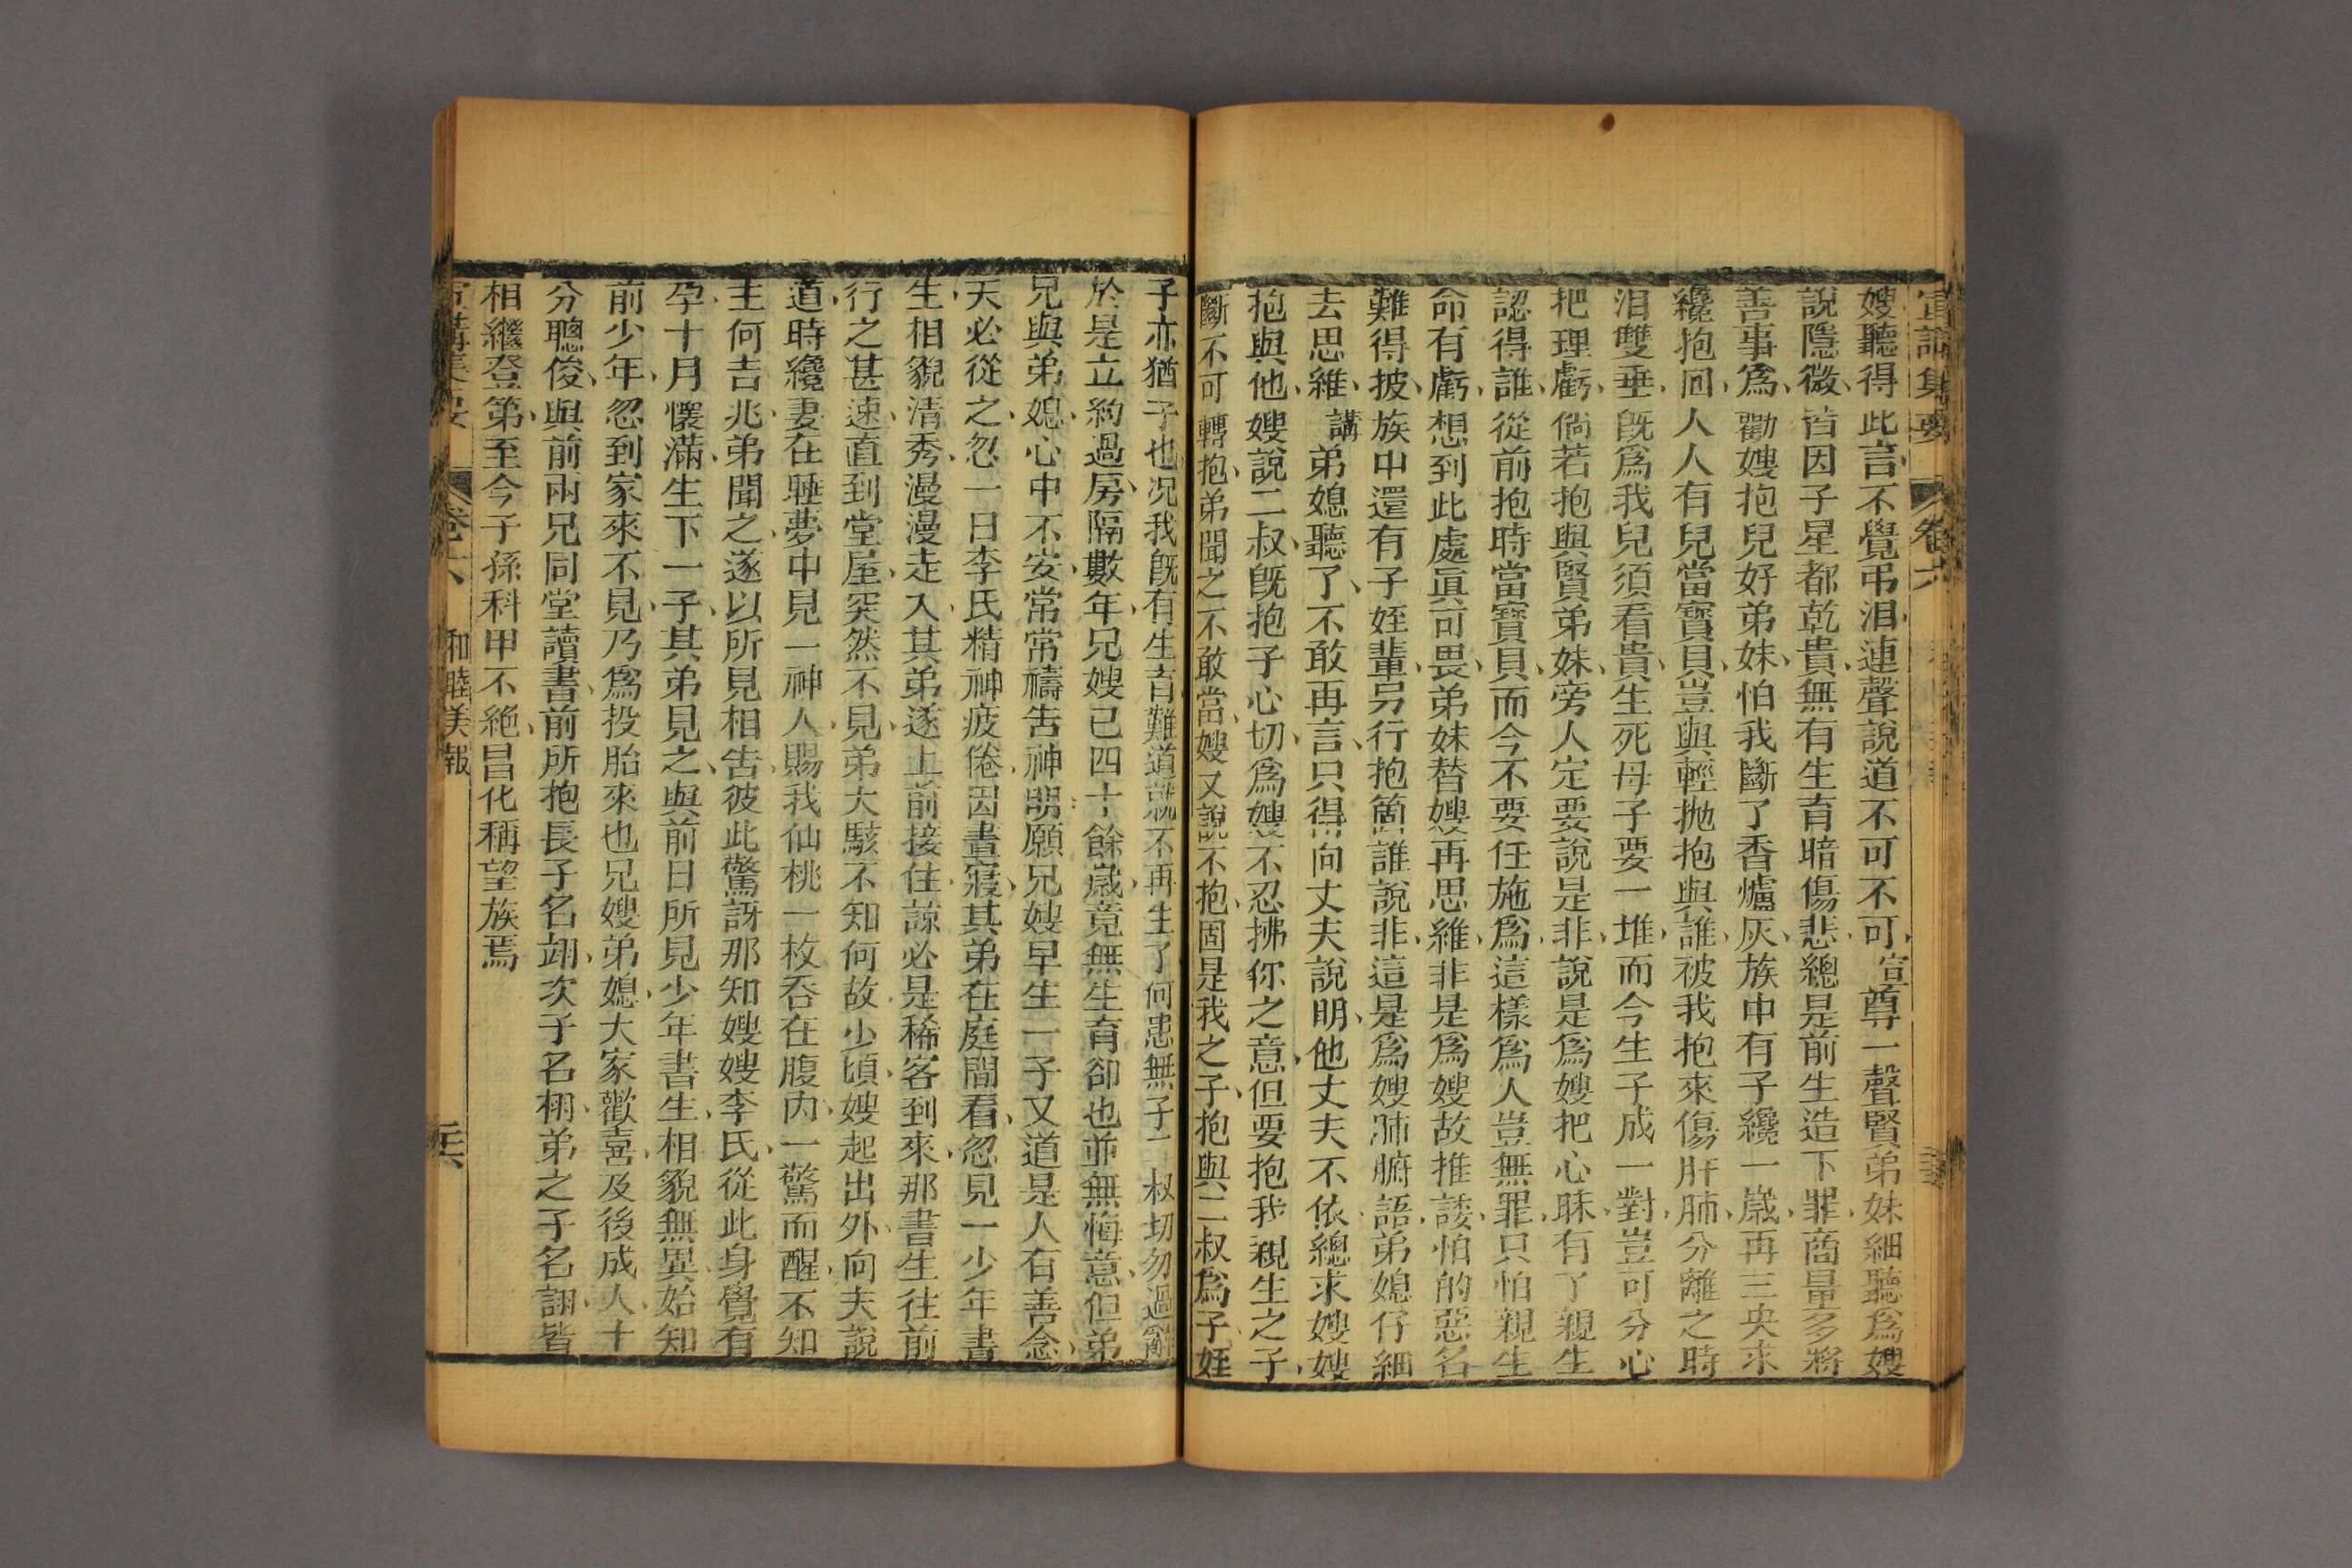 宣講集要 卷六
嫂聽得此言不覺弔淚連聲說道不可不可宣尊一聲賢弟妹細聽爲嫂
說隱微皆因子星都乾貴無有生育暗傷悲總是前生造下罪商量多將
善事爲勸嫂抱兒好弟妹怕我斷了香爐灰族中有子纔一歲再三央求
纔抱回人人有兒當寶貝豈與輕抛抱與誰被我抱來傷肝肺分離之時
泪雙垂旣爲我兒須看貴生死母子要一堆而今生子成一對豈可分心
把理虧倘若抱與賢弟妹旁人定要說是非說是爲嫂把心昧有了親生
認得誰從前抱時當寶貝而今不要任施爲這樣爲人豈無罪只怕親生
命有虧想到此處眞可畏弟妹替嫂再思維非是爲嫂故推諉怕的惡名
難得披族中還有子姪輩另行抱箇誰說非這是爲嫂肺腑語弟媳仔細
去思維講弟媳聽了不敢再言只得向丈夫說明他丈夫不依總求嫂嫂
抱與他嫂說二叔旣抱子心切爲嫂不忍拂你之意但要抱我親生之子
斷不可轉抱弟聞之不敢當嫂又說不抱固是我之子抱與二叔爲子姪
子亦猶子也况我旣有生育難道就不再生了何患無子二叔切勿過辭
於是立約過房隔數年兄嫂已四十餘歲竟無生育卻也並無悔意但弟
兄與弟媳心中不安常常禱告神明願兄嫂早生一子又道是人有善念
天必從之忽一日李氏精神疲倦因晝寢其弟在庭間看忽見一少年書
生相貌清秀漫漫走入其弟遂上前接住諒必是稀客到來那書生往前
行之甚速直到堂屋突然不見弟大駭不知何故少頃嫂起出外向夫說
道時纔妻在睡夢中見一神人賜我仙桃一枚吞在腹內一驚而醒不知
主何吉兆弟聞之遂以所見相告彼此驚訝那知嫂嫂李氏從此身覺有
孕十月懷滿生下一子其弟見之與前日所見少年書生相貌無異始知
前少年忽到家來不見乃爲投胎來也兄嫂弟媳大家歡喜及後成人十
分聰俊與前兩兄同堂讀書前所抱長子名翊次子名栩弟之子名詡皆
相繼登第至今子孫科甲不絶昌化稱望族焉
宣講集要 卷六 和睦美報